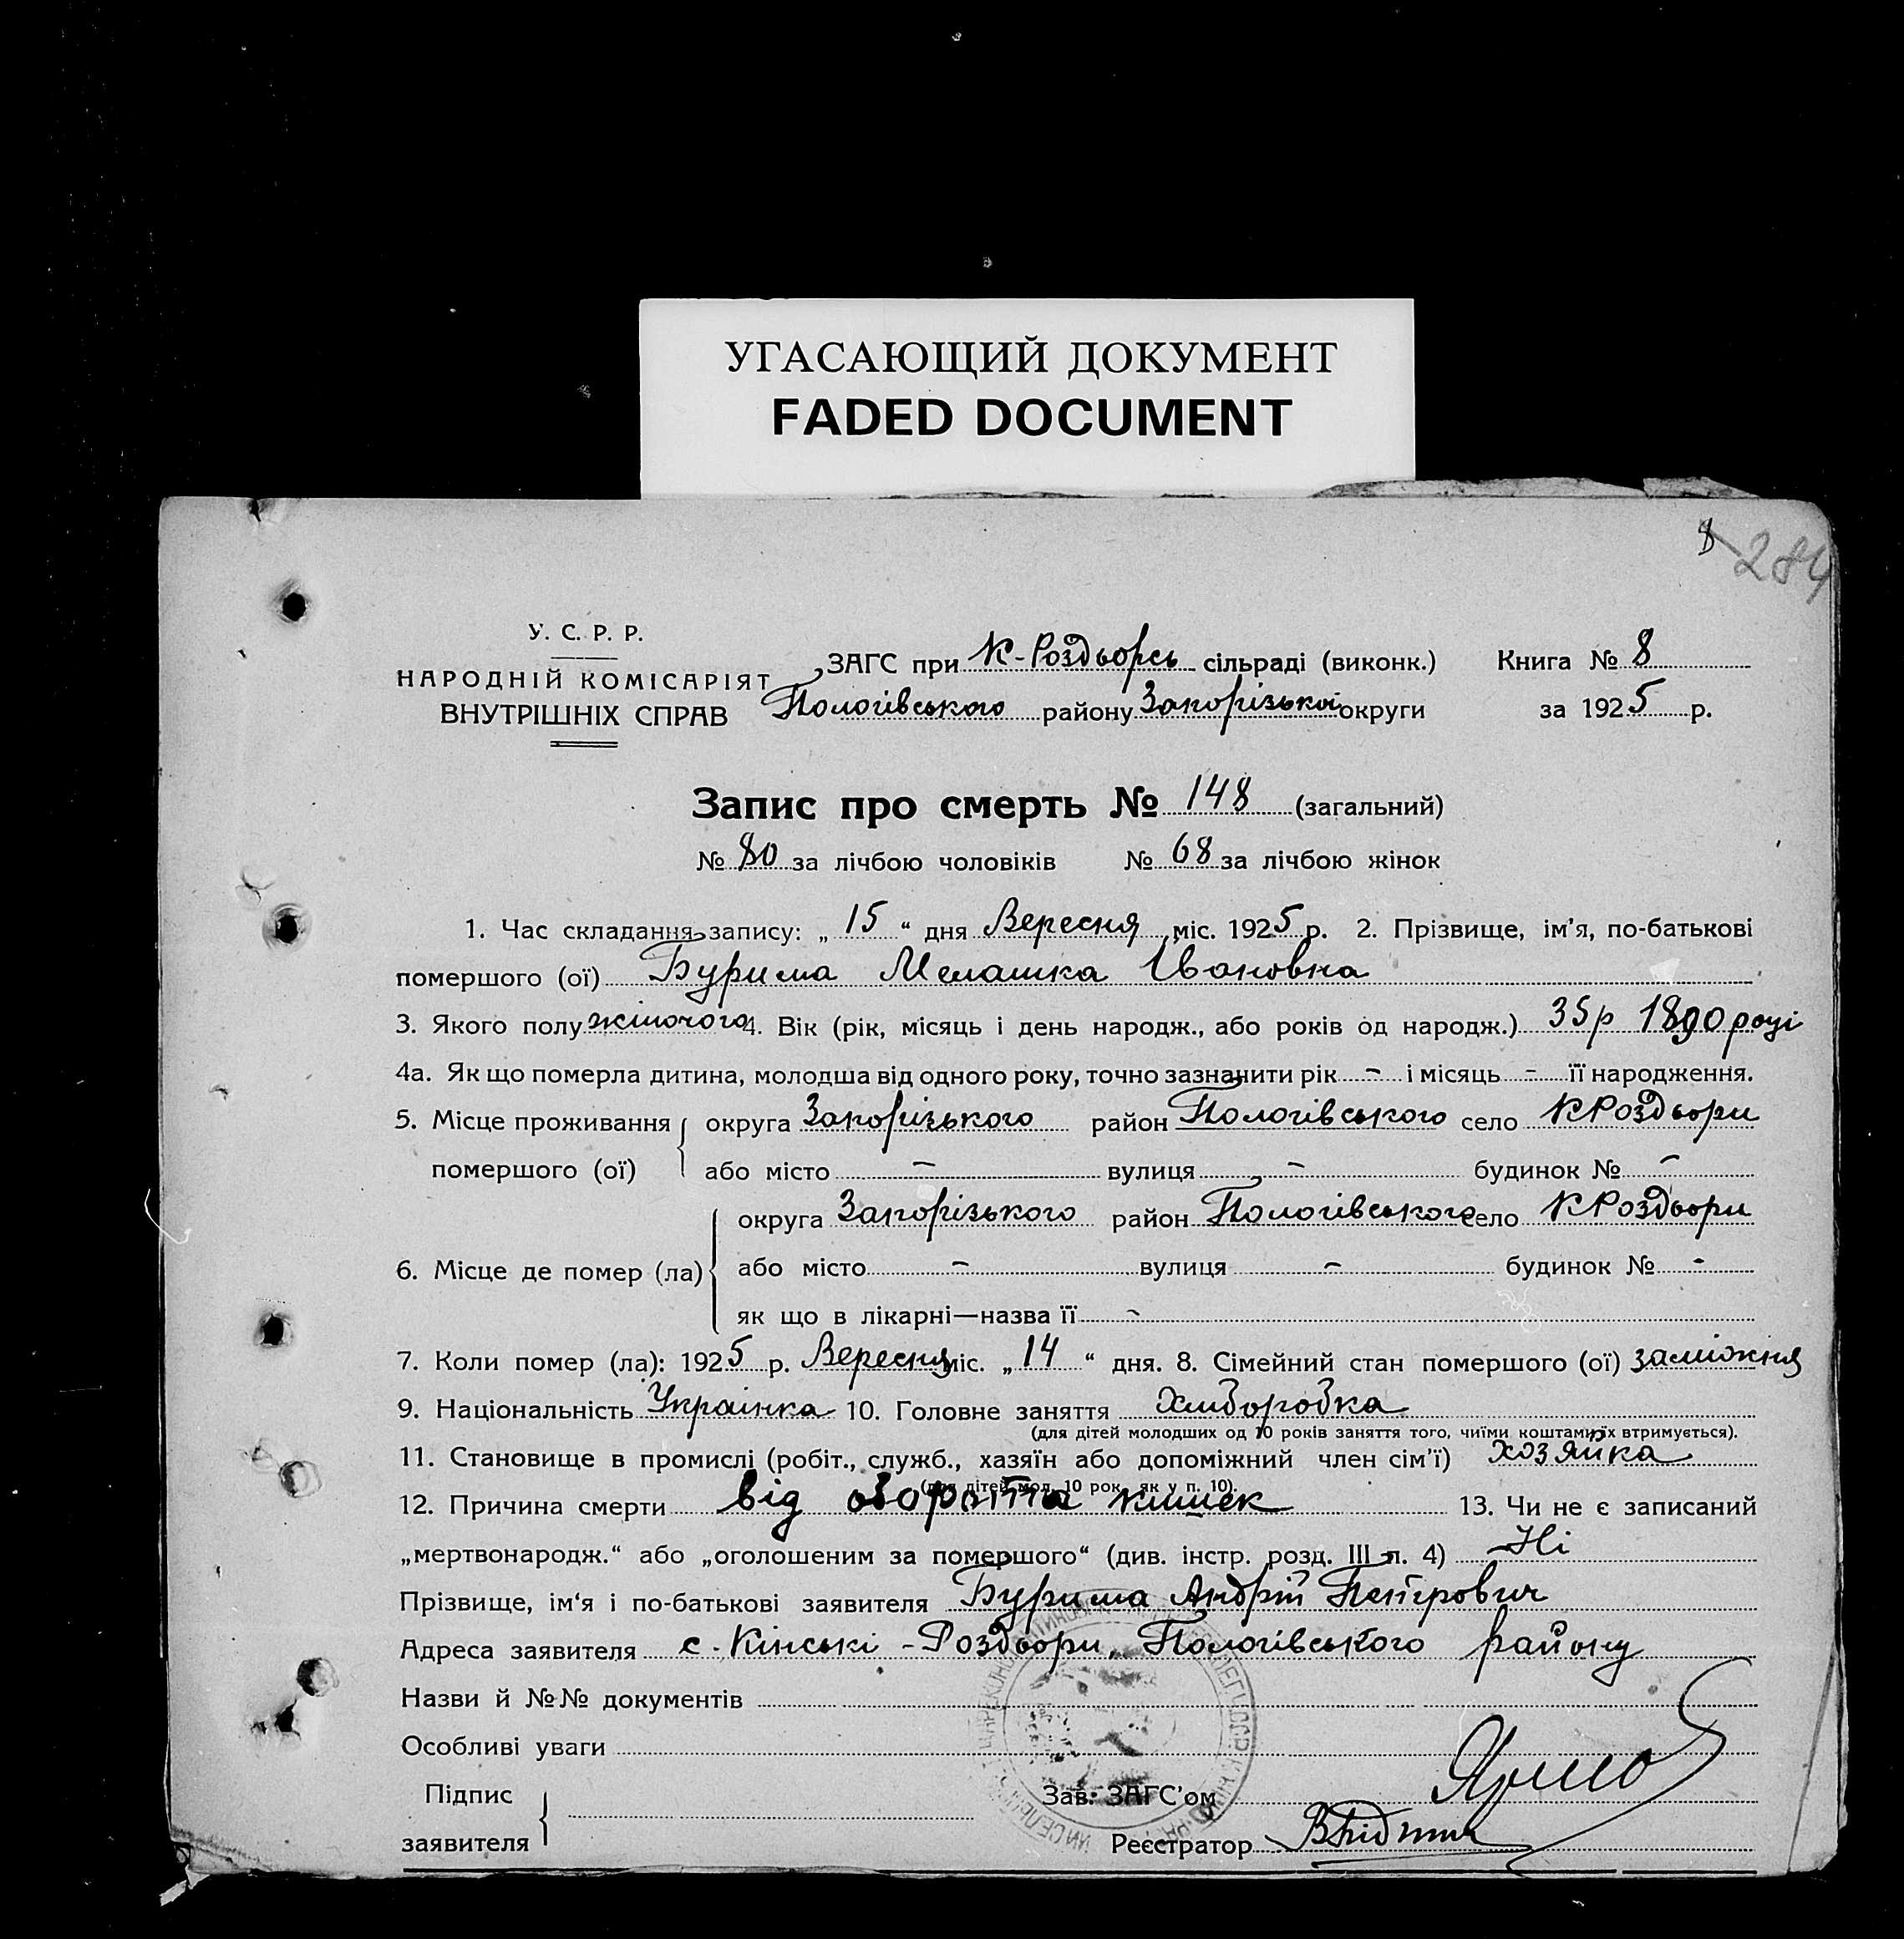 УГАСАЮЩИЙ ДОКУМЕНТ
FADED DOCUMENT
8 284
У. С. Р. Р.
НАРОДНІЙ КОМІСАРІЯТ
ВНУТРІШНІХ СПРАВ
ЗАГС при К-Роздорсь сільраді (виконк.) Книга № 8
Пологівського району Запорізької округи за 1925 р.
Запис про смерть № 148 (загальний)
№ 80 за лічбою чоловіків № 68 за лічбою жінок
1. Час складання запису: „ 15 “ дня Вересня міс. 1925 р. 2. Прізвище, ім'я, по-батькові
помершого (ої) Бурима Мелашка Івановна
3. Якого полу жіночого 4. Вік (рік, місяць і день народж., або років од народж.) 35 р 1890 році
4а. Як що померла дитина, молодша від одного року, точно зазначити рік – і місяць – її народження.
5. Місце проживання округа Запорізького район Пологівського село КРоздори
помершого (ої) або місто – вулиця – будинок № –
округа Запорізького район Пологівського село КРоздори
6. Місце де помер (ла) або місто – вулиця – будинок № -
як що в лікарні—назва її –
7. Коли помер (ла): 1925 р. Вересня міс. „ 14 “ дня. 8. Сімейний стан помершого (ої) заміжня
9. Національність Українка 10. Головне заняття Хліборобка
(для дітей молодших од 10 років заняття того, чиїми коштами їх втримується).
11. Становище в промислі (робіт., служб., хазяїн або допоміжний член сім'ї) хозяйка
(для дітей мол. 10 рок., як у п. 10).
12. Причина смерти від заворота кишек 13. Чи не є записаний
„мертвонародж.“ або „оголошеним за помершого“ (див. інстр. розд. III п. 4) Ні
Прізвище, ім'я і по-батькові заявителя Бурима Андрій Петрович
Адреса заявителя с. Кінські-Роздори, Пологівського району
Назви й №№ документів
Особливі уваги
Підпис
заявителя
Зав. ЗАГС'ом
Реєстратор